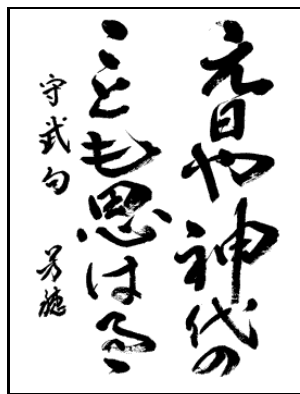 元日や神代の
ことも思はるゝ
守武句 芳